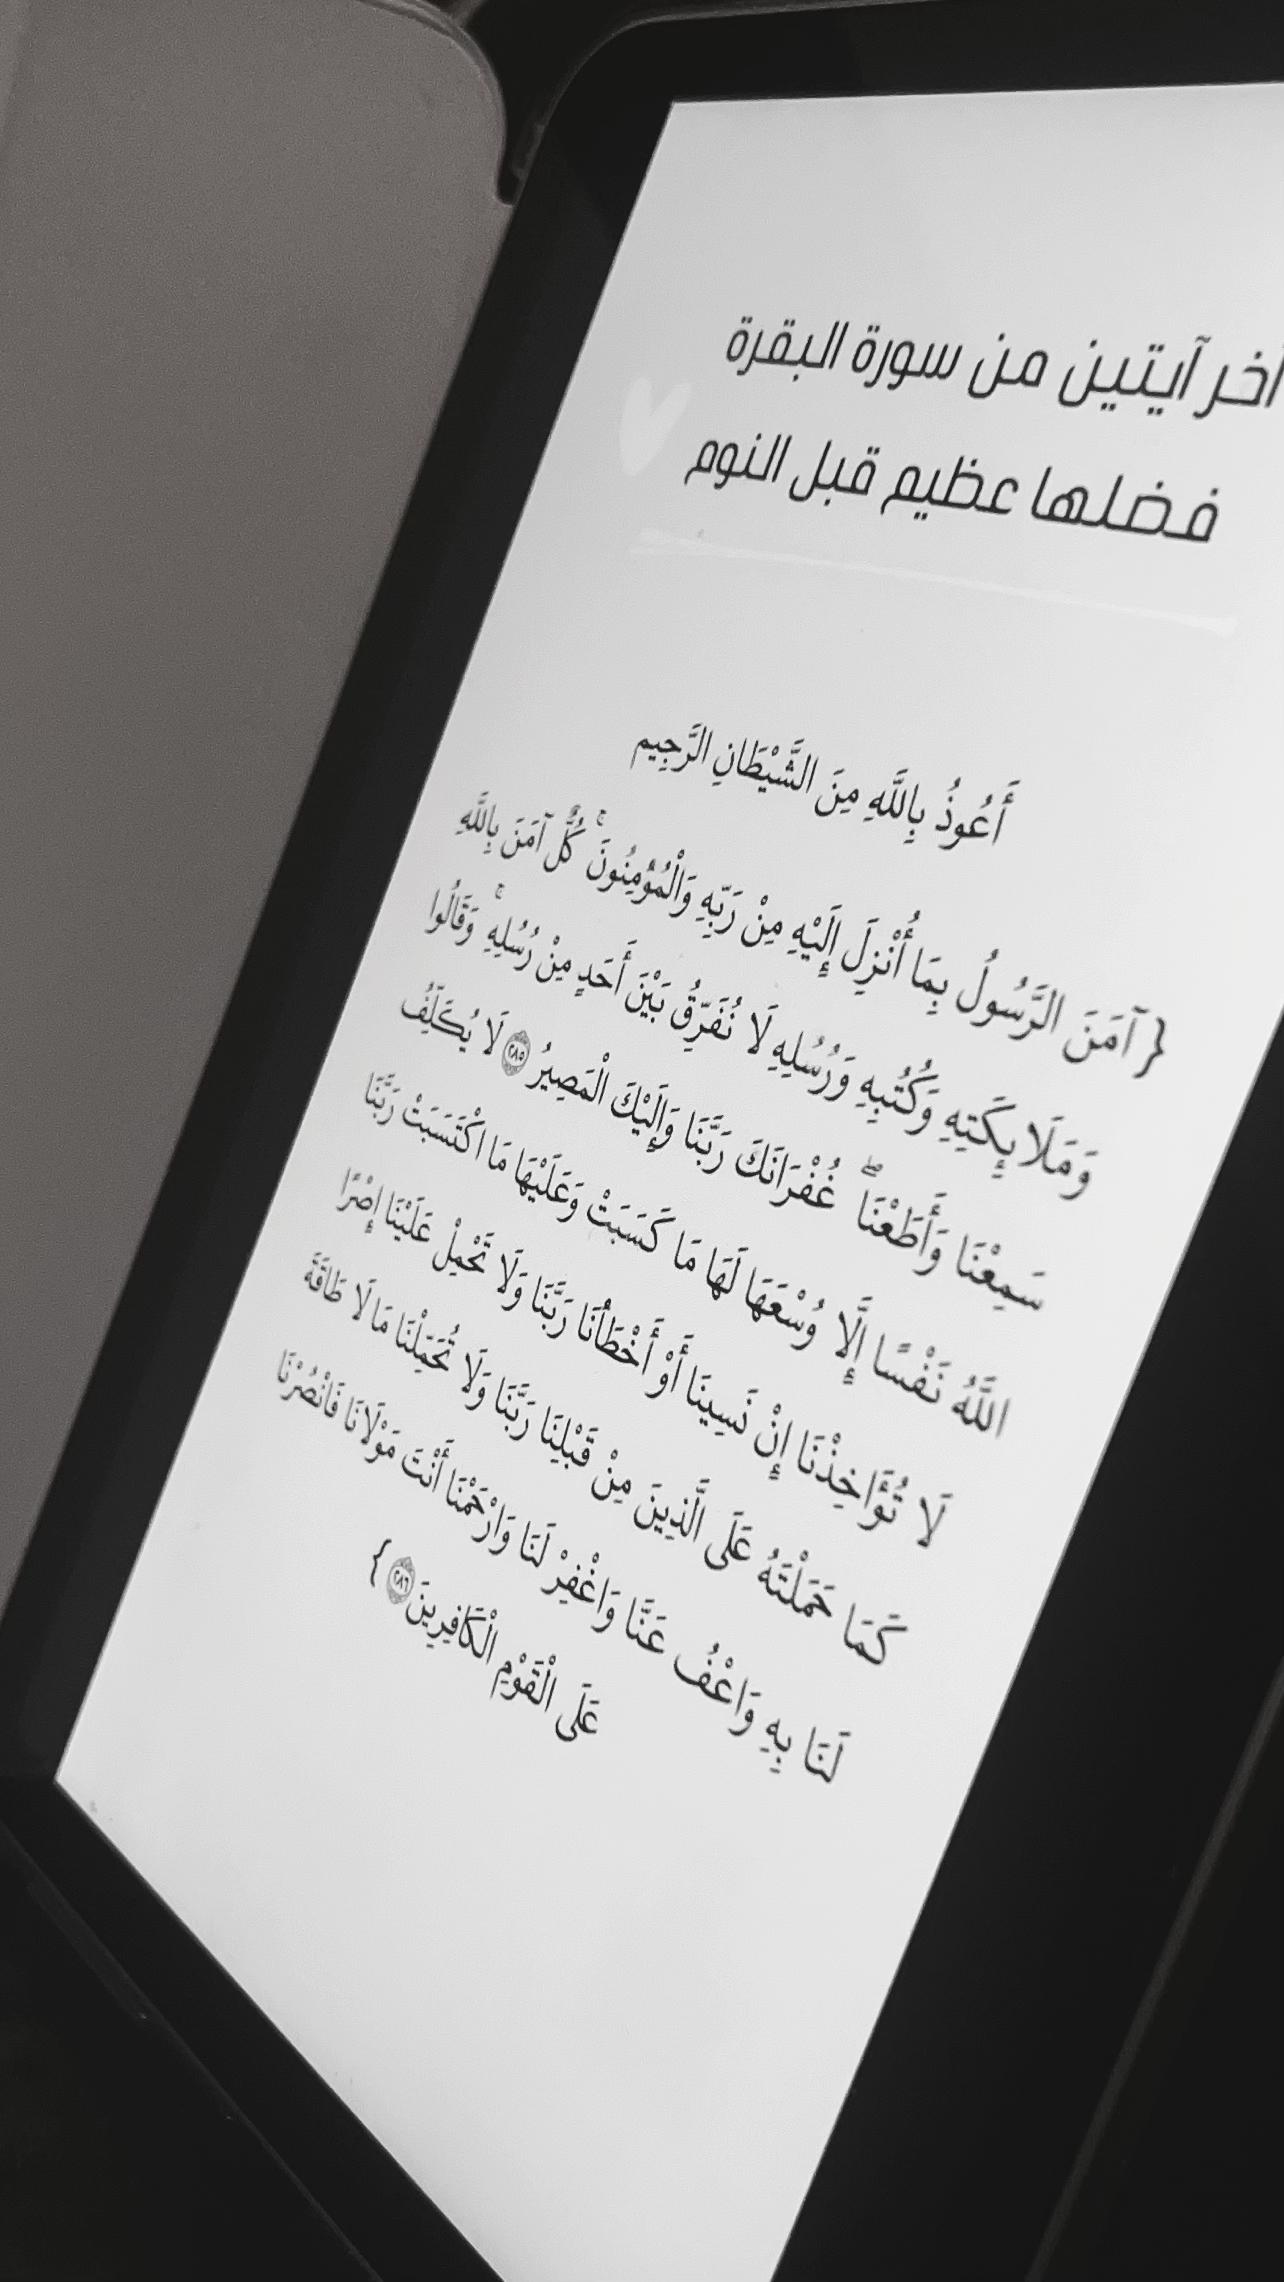 أخر آيتين من سورة البقرة
فضلها عظيم قبل النوم
أَعُوذُ بِاللَّهِ مِنَ الشَّيْطَانِ الرَّجِيم
{ آمَنَ الرَّسُولُ بِمَا أُنْزِلَ إِلَيْهِ مِنْ رَبِّهِ وَالْمُؤْمِنُونَ ۚ كُلٌّ آمَنَ بِاللَّهِ
وَمَلَائِكَتِهِ وَكُتُبِهِ وَرُسُلِهِ لَا نُفَرِّقُ بَيْنَ أَحَدٍ مِنْ رُسُلِهِ ۚ وَقَالُوا
سَمِعْنَا وَأَطَعْنَا ۖ غُفْرَانَكَ رَبَّنَا وَإِلَيْكَ الْمَصِيرُ ٢٨٥ لَا يُكَلِّفُ
اللَّهُ نَفْسًا إِلَّا وُسْعَهَا لَهَا مَا كَسَبَتْ وَعَلَيْهَا مَا اكْتَسَبَتْ رَبَّنَا
لَا تُؤَاخِذْنَا إِنْ نَسِينَا أَوْ أَخْطَأْنَا رَبَّنَا وَلَا تَحْمِلْ عَلَيْنَا إِصْرًا
كَمَا حَمَلْتَهُ عَلَى الَّذِينَ مِنْ قَبْلِنَا رَبَّنَا وَلَا تُحَمِّلْنَا مَا لَا طَاقَةَ
لَنَا بِهِ وَاعْفُ عَنَّا وَاغْفِرْ لَنَا وَارْحَمْنَا أَنْتَ مَوْلَانَا فَانْصُرْنَا
عَلَى الْقَوْمِ الْكَافِرِينَ ٢٨٦ }